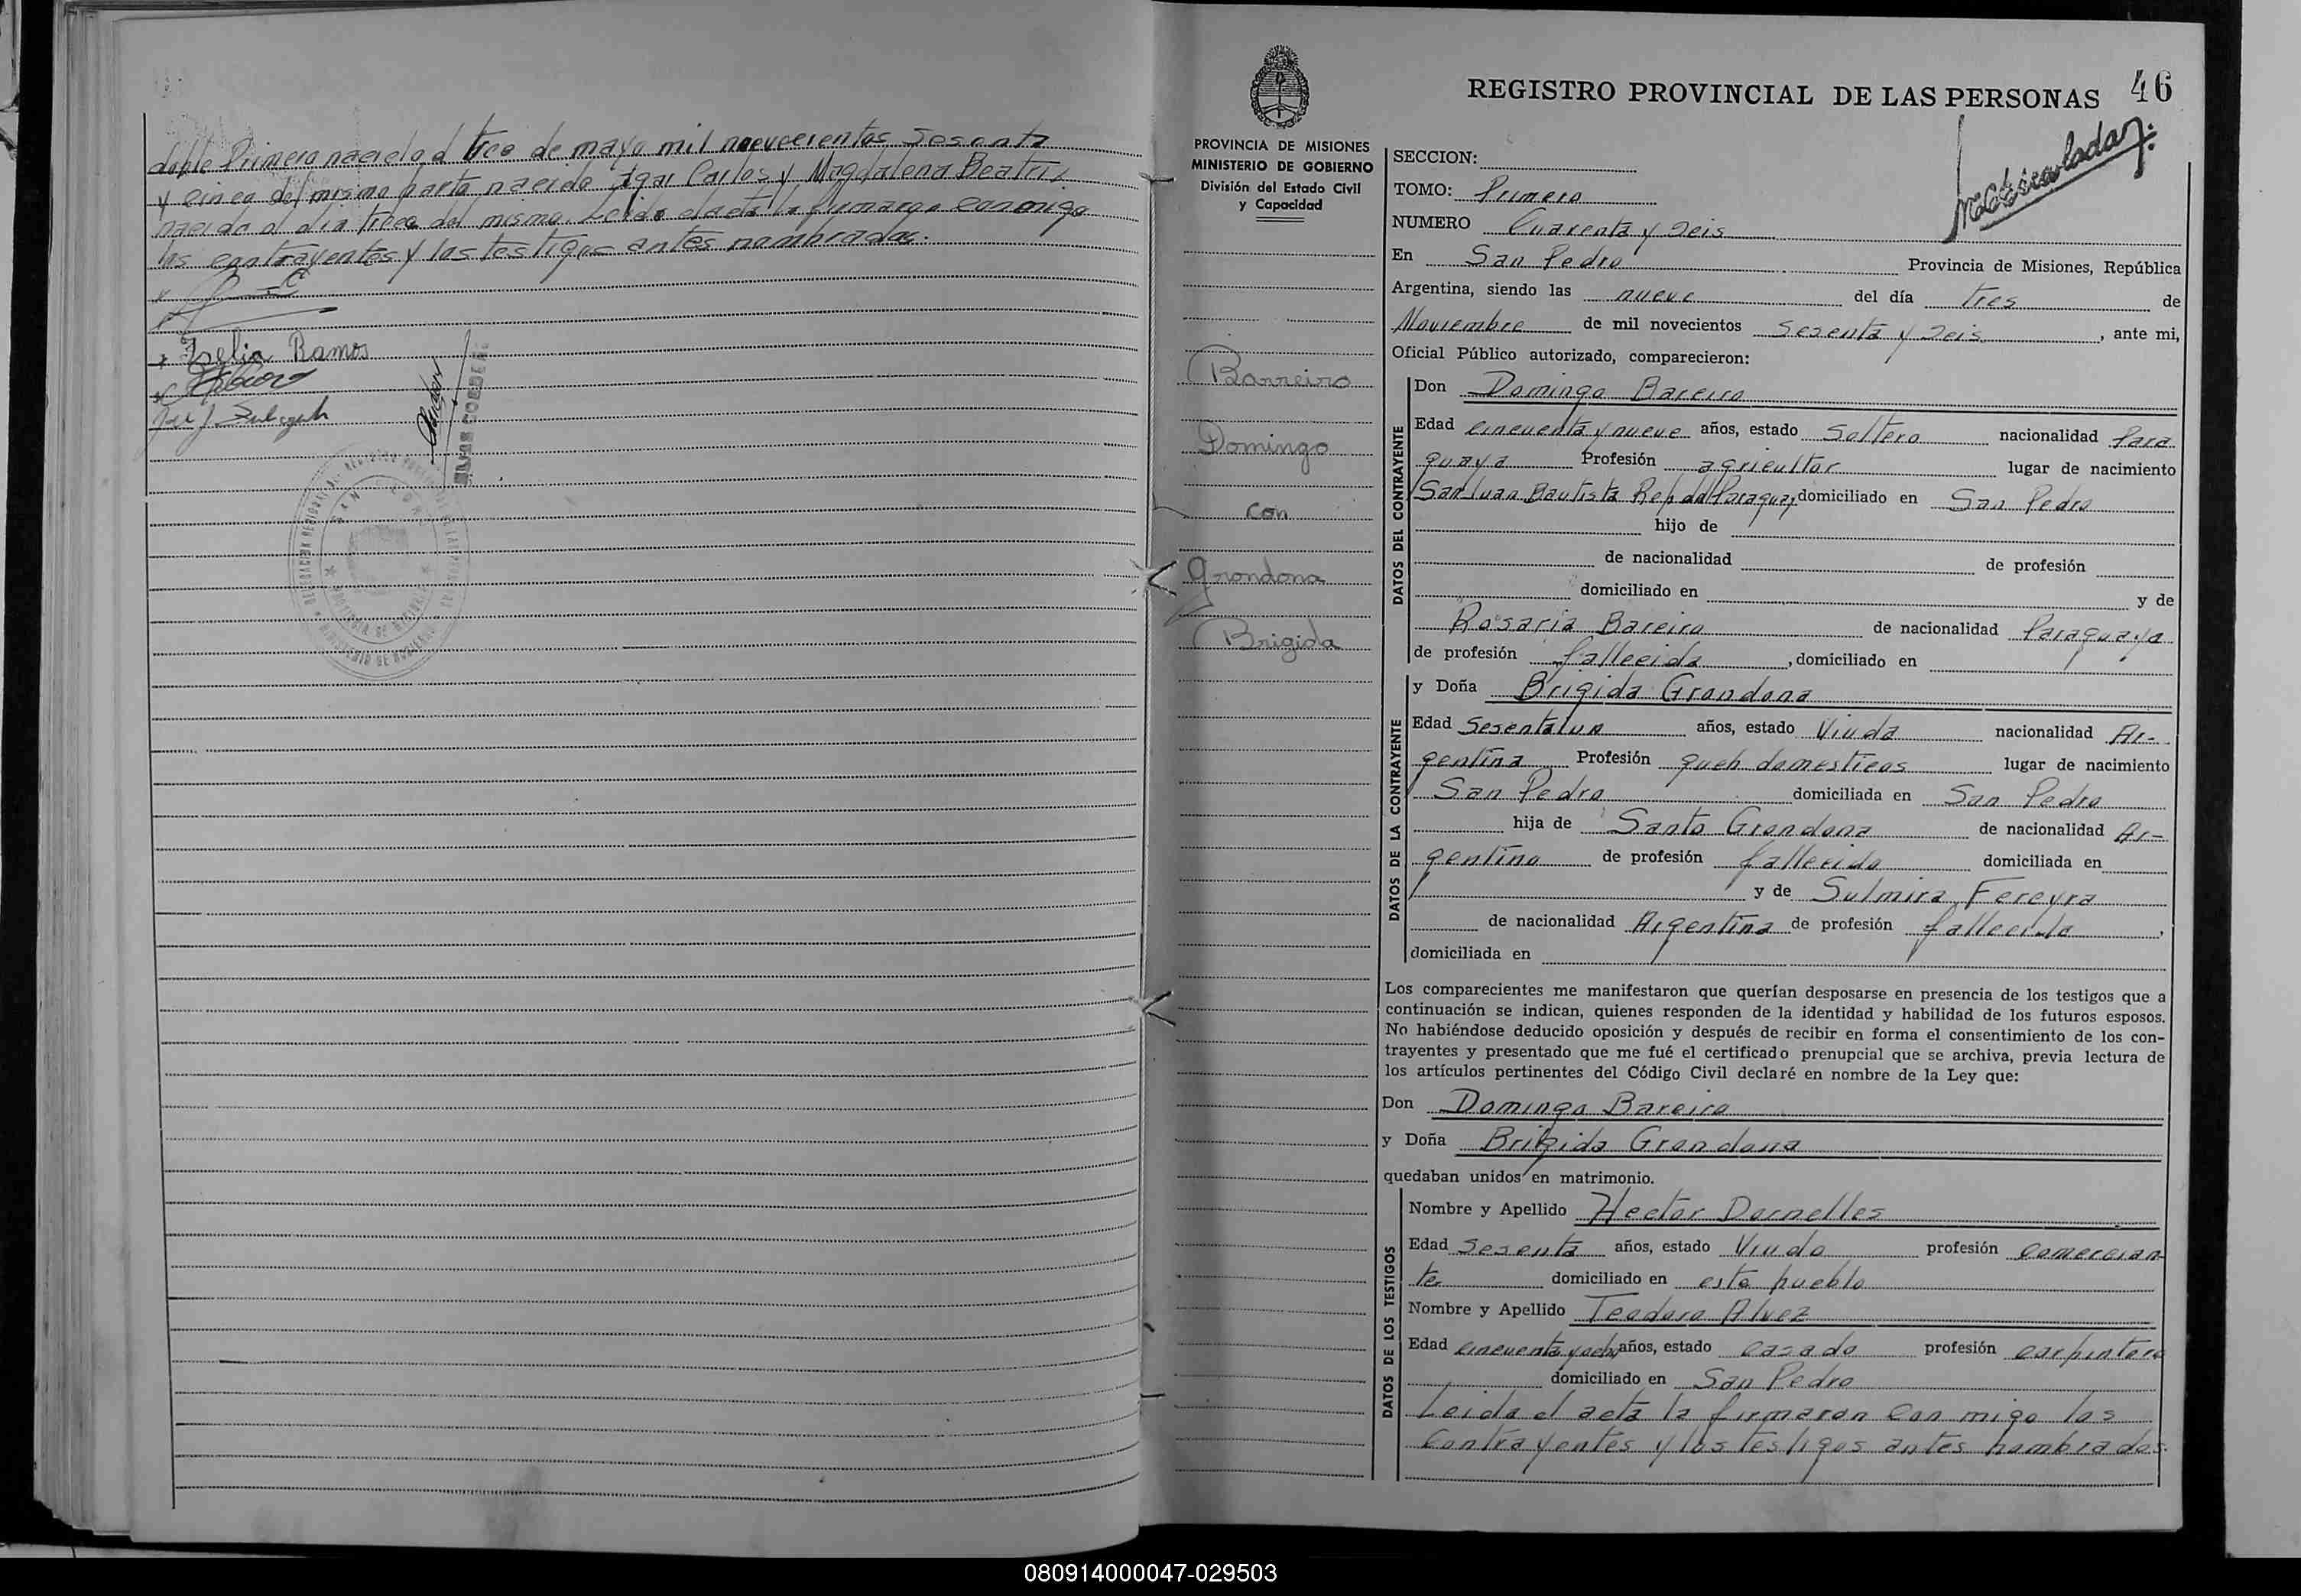 doble Primero nacido el trece de mayo mil novecientos sesenta
y cinco del mismo parto nacido Igar Carlos y Magdalena Beatriz
nacida el dia trece del mismo. Leida el acta la firmaron conmigo
los contrayentes y los testigos antes nombrados.
Zselia Ramos
46
REGISTRO PROVINCIAL DE LAS PERSONAS
PROVINCIA DE MISIONES
MINISTERIO DE GOBIERNO
División del Estado Civil
y Capacidad
Barreiro
Domingo
con
Grondona
Brigida
SECCION:
TOMO: Primero
NUMERO Cuarenta y Seis
En San Pedro Provincia de Misiones, República
Argentina, siendo las nueve del día tres de
Noviembre de mil novecientos sesenta y seis, ante mi,
Oficial Público autorizado, comparecieron:
DATOS DEL CONTRAYENTE
Don Domingo Bareiro
Edad cincuenta y nueve años, estado Soltero nacionalidad Para
guaya Profesión agricultor lugar de nacimiento
San Juan Bautista Rep del Paraguay domiciliado en San Pedro
hijo de
de nacionalidad de profesión
domiciliado en y de
Rosaria Bareiro de nacionalidad Paraguaya
de profesión fallecida, domiciliado en
DATOS DE LA CONTRAYENTE
y Doña Brigida Grondona
Edad Sesentaiun años, estado Viuda nacionalidad Ar-
gentina Profesión queh domesticos lugar de nacimiento
San Pedro domiciliada en San Pedro
hija de Santo Grondona de nacionalidad Ar-
gentino de profesión fallecido domiciliada en
y de Sulmira Fereyra
de nacionalidad Argentina de profesión fallecida,
domiciliada en
Los comparecientes me manifestaron que querían desposarse en presencia de los testigos que a
continuación se indican, quienes responden de la identidad y habilidad de los futuros esposos.
No habiéndose deducido oposición y después de recibir en forma el consentimiento de los con-
trayentes y presentado que me fué el certificado prenupcial que se archiva, previa lectura de
los artículos pertinentes del Código Civil declaré en nombre de la Ley que:
Don Domingo Bareiro
y Doña Brigida Grondona
quedaban unidos en matrimonio.
DATOS DE LOS TESTIGOS
Nombre y Apellido Hector Dornelles
Edad Sesenta años, estado Viudo profesión comercian-
te domiciliado en este pueblo
Nombre y Apellido Teodoro Alvez
Edad cincuenta y ocho años, estado casado profesión carpintero
domiciliado en San Pedro
Leida el acta la firmaron con migo los
contrayentes y los testigos antes nombrados.
080914000047-029503